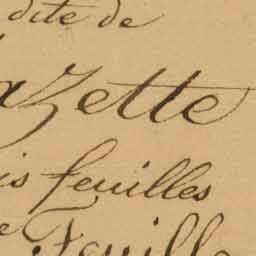 dite de
azette
is feuilles
e Feuille